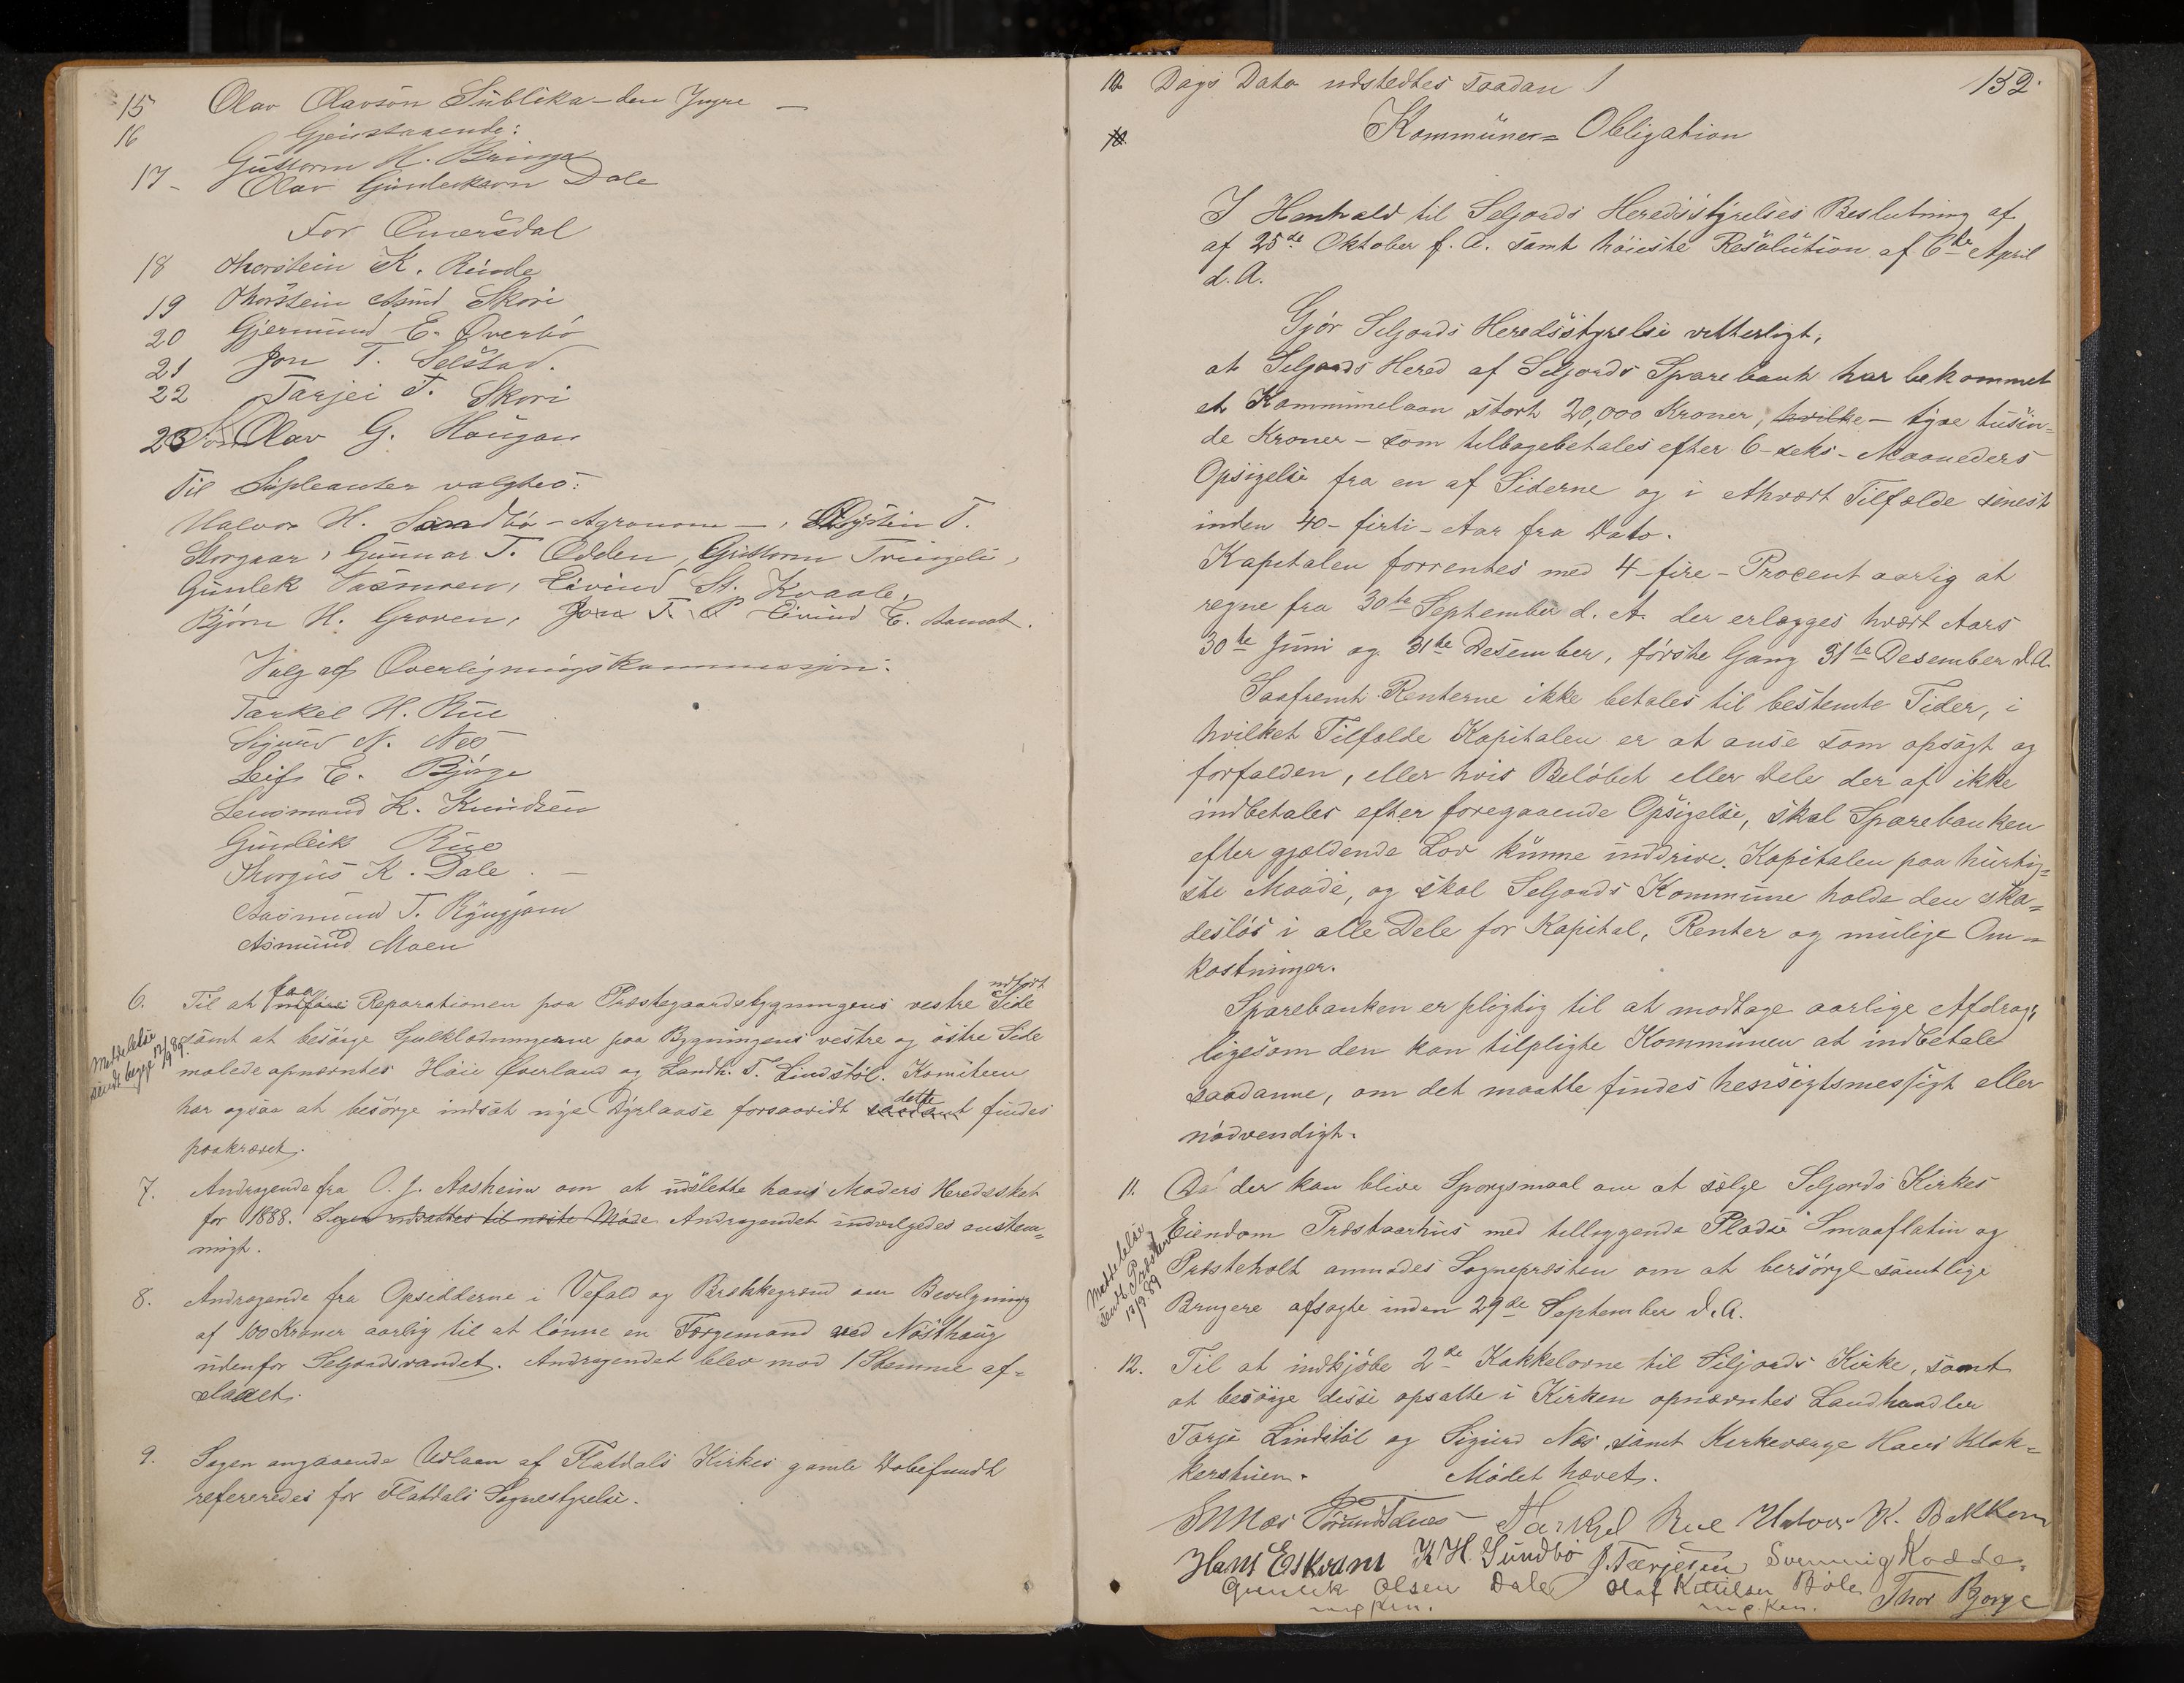 15 Olav Olavson Sublika - den Yngre -
16 Gjenstaaende:
Guttorm H. Bringa
17 - Olav Gunleksøn Dale
For Aamersdal
18 Thorstein K. Rinde
19 Thorstein Asmd Skori
20 Gjermund E. Øverbö
21 Jon T. Selstad.
22 Tarjei T. Skori
23 Olav G. Haugan
Til Supleanter valgtes:
Halvor H. Sandbö - Agronom - , Øystein T.
Storgaar, Gunnar T. Odden, Guttorm Tveigeli,
Gunlek Vasmoen, Eivind St. Kvaale,
Björn H. Groven, Jon T. P Eivind E. Aamot.
Valg af Overligningskommissjon:
Tarkel H. Rue
Sigurd N. Nes
Leif E. Björge
Lensmand K. Knudsen
Gunleik Rue
Thorgus K. Dale . -
Aasmund T. Ryngjom
Asmund Moen
6. Til at faa Reparationen paa Præstegaardsbygningens vestre Side udført
samt at besörge Gulklædningerne paa Bygningens vestre og östre Side
malede opnævntes Höie Øverland og Landh. T. Lindstöl. Komiteen
har ogsaa at besörge indsat nye Dyrlaase forsaavidt saadant dette findes
paakrævet.
Meddelelse
sendt begge 12/9 89.
7. Andragende fra O. J. Aasheim om at udslette hans Moders Heredsskat
for 1888. Sagen udsattes til næste Möde Andragendet indvilgedes enstem=
migt.
8. Andragende fra Opsidderne i Vefald og Brækkegrænd om Bevilgning
af 100 Kroner aarlig til at lönne en Færgemand ved Nösthaug
udenfor Seljordsvandet. Andragendet blev mod 1 Stemme af=
slaaet.
9. Sagen angaaende Udlaan af Flatdals Kirkes gamle Döbefundt
refereredes for Flatdals Sognestyrelse.
152.
10. Dags Dato udstedtes saadan
10. Kommüne= Obligation
I Henhold til Seljords Heredsstyrelses Beslutning af
af 25de Oktober f. A. samt höieste Resolution af 6te April
d. A.
Gjör Seljords Heredsstyrelse vitterligt,
at Seljords Hered af Seljords Sparebank har bekommet
et Kommunelaan stort 20,000 Kroner, hvilke - tyve tusin=
de Kroner - som tilbagebetales efter 6 - seks - Maaneders
Opsigelse fra en af Siderne og i ethvert Tilfælde senest
inden 40 - firti - Aar fra Dato.
Kapitalen forrentes med 4 - fire - Procent aarlig at
regne fra 30te September d. A. der erlægges hvert Aars
30te Juni og 31te Desember, förste Gang 31te Desember d. A.
Saafremt Renterne ikke betales til bestemte Tider, i
hvilket Tilfælde Kapitalen er at anse som opsagt og
forfalden, eller hvis Belöbet eller Dele der af ikke
indbetales efter foregaaende Opsigelse, skal Sparebanken
efter gjældende Lov kunne inddrive Kapitalen paa hurtig=
ste Maade, og skal Seljords Kommune holde den ska=
desløs i alle Dele for Kapital, Renter og mulige Om=
kostninger.
Sparebanken er pligtig til at modtage aarlige Afdrag,
ligesom den kan tilpligte Kommunen at indbetale
saadanne, om det maatte findes hensigtsmessigt eller
nödvendigt.
11. Da der kan blive Spörgsmaal om at sælge Seljords Kirkes
Eiendom Prestaarhus med tilliggende Pladse Smaaflatin og
Præsteholt anmodes Sognepræsten om at bersörge samtlige
Brugere opsagte inden 29de September d. A.
Meddelelse
sendt Præsten
12/9. 89
12. Til at indkjöbe 2de Kakkelovne til Seljords Kirke, samt
at besörge disse opsatte i Kirken opnævntes Landhandler
Tarje Lindstöl og Sigurd Nes, samt Kirkeværge Hans Klok=
kerstuen. Mödet hævet.
Tarkjel Rue Halvor K. Bakken
Hans E Skram K H. Sundbö J. Tarjesen Svennug Kodde
Gunlik Olsen Dale Olaf Kittilsen Böle Thor Bjorge
m p. Pen. m. p. Pen.